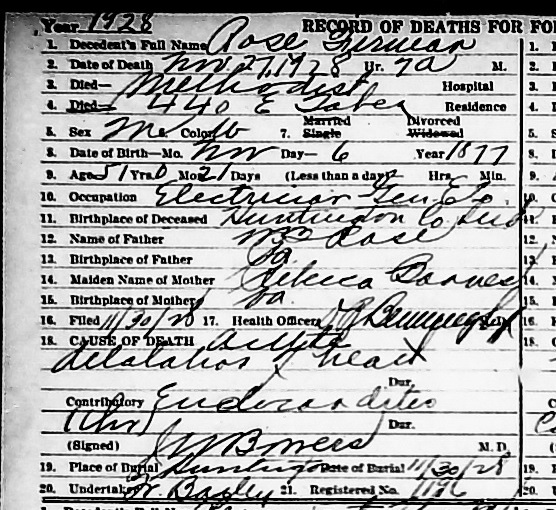 Year 1928 RECORD OF DEATHS FOR FO
1. Decedent's Full Name Rose Furman
2. Date of Death Nov 27, 1928 Hr. 7a M.
3. Died— Methodist Hospital
4. Died— 440 E Taber Residence
5. Sex M 6. Color W 7. Married Single Divorced Widowed
8. Date of Birth—Mo. Nov Day— 6 Year 1877
9. Age 51 Yrs 0 Mo 21 Days (Less than a day) Hrs. Min.
10. Occupation Electrician Gen. E.
11. Birthplace of Deceased Huntington Co Ind
12. Name of Father Wm Rose
13. Birthplace of Father Pa
14. Maiden Name of Mother Rebeca Barnes
15. Birthplace of Mother Pa
16. Filed 11/30/28 17. Health Officer
18. CAUSE OF DEATH Acute
dilatation of heart
Dur.
Contributory Endocarditis
(Chr) Dur.
(Signed) Bowers M. D.
19. Place of Burial Huntington Date of Burial 11/30/28
20. Undertaker W. Bagley 21. Registered No. 1196